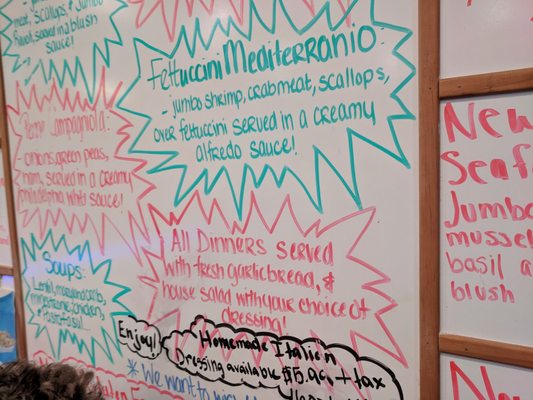 meat, scallops, & Jumbo
Ravioli, served in a blush
sauce!
Fettuccini Mediterranio:
- jumbo shrimp, crabmeat, scallops,
over fettuccini served in a creamy
alfredo sauce!
Penne Campagniola:
- onions, green peas,
ham, served in a creamy
philadelphia white sauce!
Soups:
Pastafasul...
All Dinners served
with fresh garlic bread, &
house salad with your choice of
dressing!
Enjoy!
Homemade Italian
Dressing available $5.96 + tax
*We want to
New
Seaf
Jumbo
mussel
basil a
blush
New